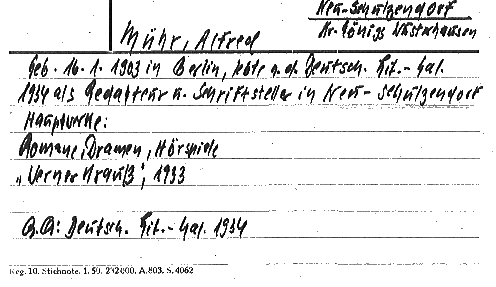 Neu-Schulzendorf
Kr. Königs Wusterhausen
Mühr, Alfred
Geb. 16.1.1903 in Berlin, lebte n.d. Deutsch. Lit.-Kal.
1934 als Redakteur u. Schriftsteller in Neu-Schulzendorf
Hauptwerke:
Romane, Dramen, Hörspiele
„Werner Krauß", 1933
Qu.: Deutsch. Lit.-Kal. 1934
Reg. 10. Stichnote. 1. 50. 212000. A.803. S.4062